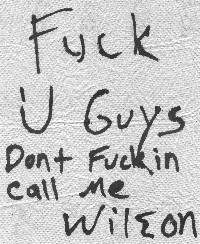 Fuck
U Guys
Dont Fuckin
call Me
Wilson